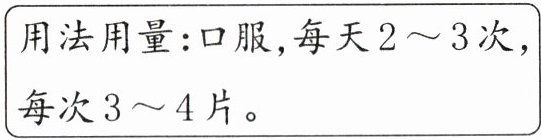 用法用量:口服,每天2～3次,
每次3～4片。